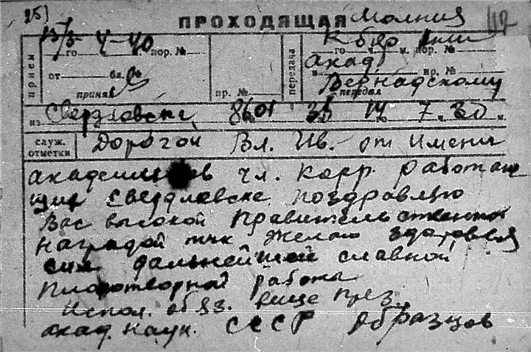 25) ПРОХОДЯЩАЯ Молния
15/3 4-40
го ч. м. пор. №
прием
от бл. №
принял
пр. №
передача
го ч. м. пор. №
Акад
Вернадскому
передал
из Свердловска 8601 36 14 7.30
служ. отметки Дорогой Вл. Ив. от имени
академиков чл. корр. работаю
щих Свердловске поздравляю
Вас высокой Правительственной
наградой тчк желаю здоровья
сил дальнейшей славной
плодотворной работы
Испол. обяз. вице През.
акад. наук. СССР Образцов